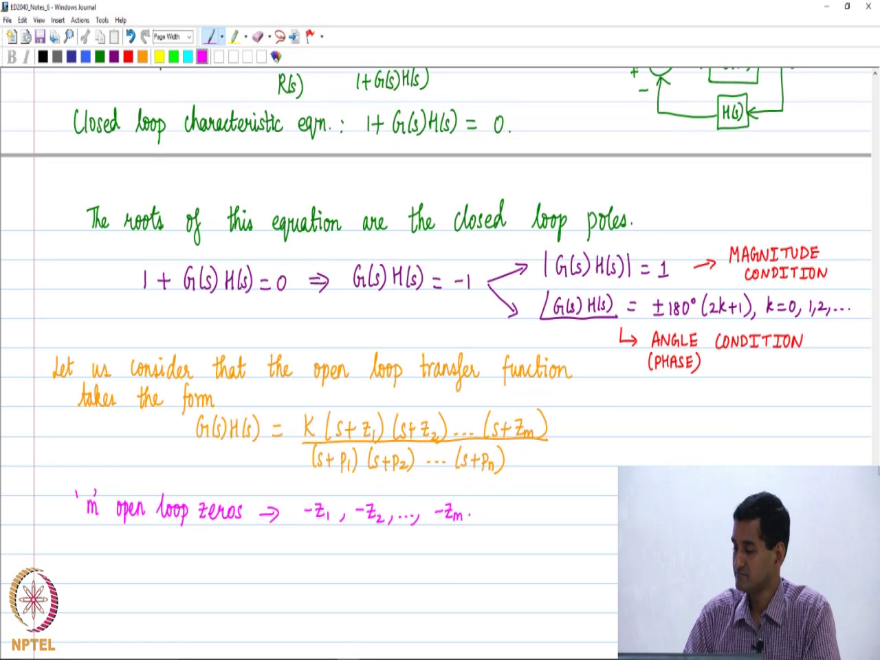 ED2040_Notes_6 - Windows Journal
File Edit View Insert Actions Tools Help
Page Width
B I
R(s) 1+G(s)H(s)
+
−
H(s)
Closed loop characteristic eqn.: 1+ G(s)H(s) = 0.
The roots of this equation are the closed loop poles.
1 + G(s)H(s) = 0 ⇒ G(s)H(s) = -1
|G(s)H(s)| = 1 → MAGNITUDE CONDITION
∠G(s)H(s) = ±180°(2k+1), k=0,1,2,...
↳ ANGLE CONDITION
(PHASE)
Let us consider that the open loop transfer function
takes the form
G(s)H(s) = K(s+z₁)(s+z₂)...(s+zm)
(s+p₁)(s+p₂) ... (s+pn)
'm' open loop zeros ⇒ -z₁, -z₂,..., -zm.
NPTEL